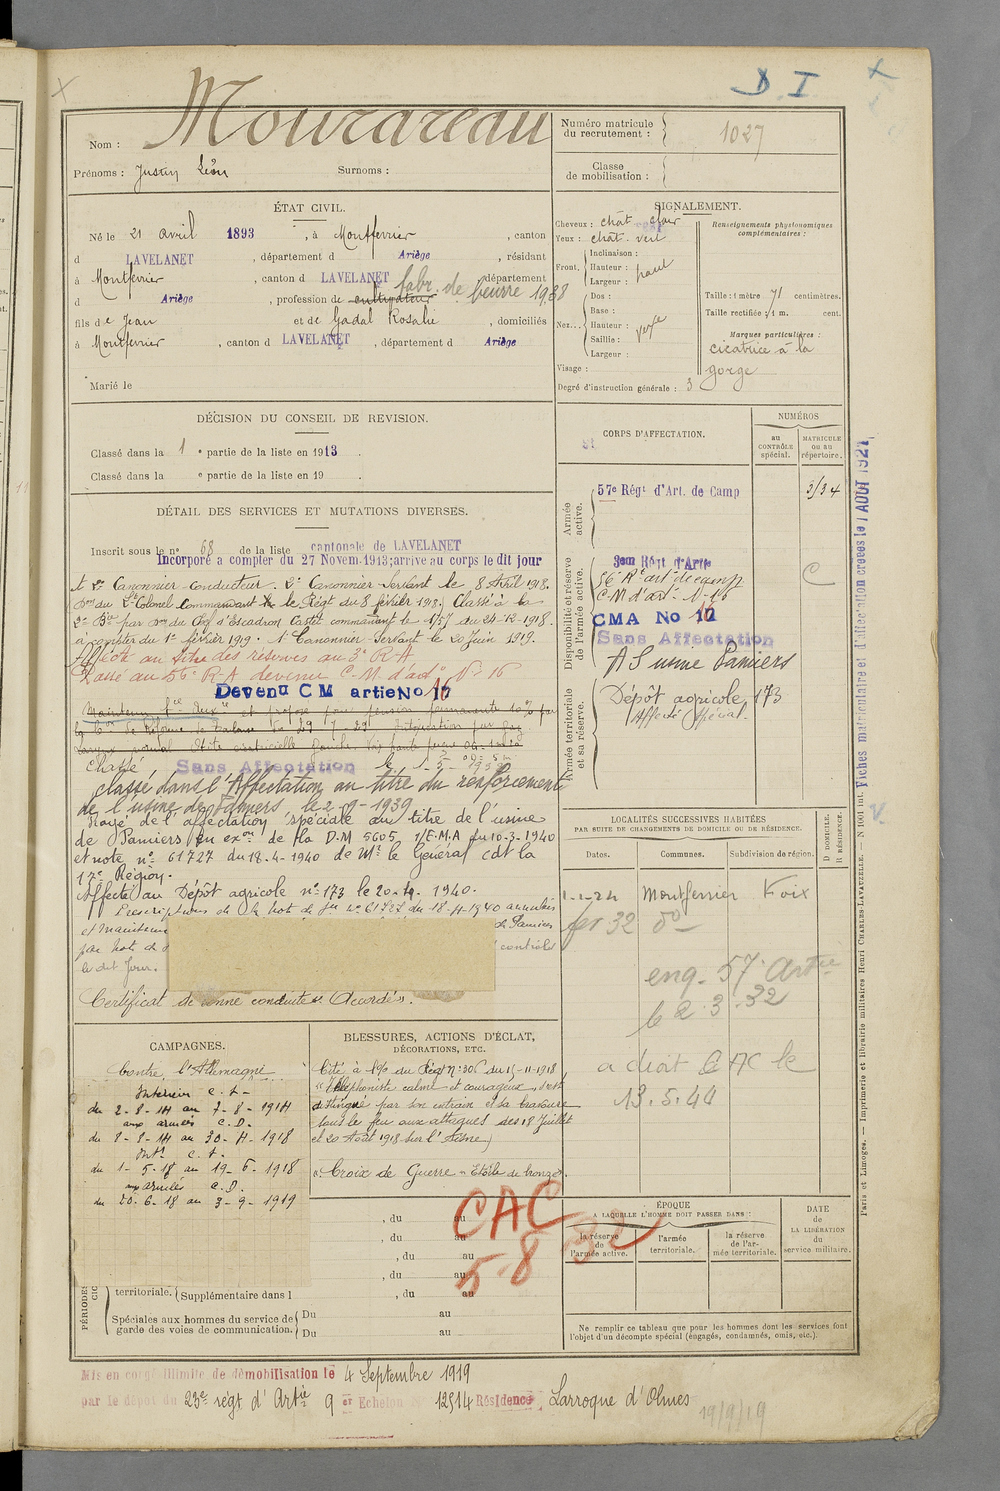 D I
Nom : Mourareau
Prénoms : Justin Léon Surnoms :
Numéro matricule du recrutement : 1027
Classe de mobilisation :
ÉTAT CIVIL.
Né le 21 avril 1893, à Montferrier, canton
d LAVELANET, département d Ariège, résidant
à Montferrier, canton d LAVELANET, département
d Ariège, profession de cultivateur fabr. de beurre 1938
fils de Jean et de Gadal Rosalie, domiciliés
à Montferrier, canton d LAVELANET, département d Ariège
Marié le
SIGNALEMENT.
Cheveux : chât clair
Yeux : chât. vert
Front,
Inclinaison :
Hauteur :
Largeur :
Nez...
Dos :
Base :
Hauteur :
Saillie :
Largeur :
Visage :
Degré d'instruction générale : 3
Renseignements physionomiques complémentaires :
Taille : 1 mètre 71 centimètres.
Taille rectifiée : 1 m. cent.
Marques particulières :
cicatrice à la
gorge
DÉCISION DU CONSEIL DE REVISION.
Classé dans la 1 e partie de la liste en 1913.
Classé dans la e partie de la liste en 19 .
DÉTAIL DES SERVICES ET MUTATIONS DIVERSES.
Inscrit sous le n° 68 de la liste cantonale de LAVELANET
Incorporé a compter du 27 Novem. 1913; arrive au corps le dit jour
et 2e Canonnier conducteur. 2e Canonnier Servant le 8 Avril 1918.
du Lt Colonel Commandant le Régt du 8 février 1918. Classé à la
2e Bie par du Chef d'Escadron Castet commandant le 1/57 du 24-12-1918.
à compter du 1er février 1919. 1e Canonnier Servant le 20 Juin 1919.
Affecté au titre des réserves au 3e R A
Passé au 56e R A devenu C. M. d'art n° 16
Devenu C M artie No 17
Classé Sans Affectation
classé dans l'Affectation au titre du renforcement
de l'usine de Pamiers le 2-9-1939
Rayé de l'affectation spéciale au titre de l'usine
de Pamiers en exon de la D.M 5605 1/E.M.A du 10-3-1940
et note n° 61727 du 18-4-1940 de Mr le Général cdt la
17e Région.
Affecté au Dépôt agricole n° 173 le 20-4-1940.
Prescriptions de la note de n° 61727 du 18-4-1940 annulées
et maintenu de Pamiers
par note de contrôles
le dit jour.
Certificat de bonne conduite « Accordé ».
CORPS D'AFFECTATION.
NUMÉROS
au CONTRÔLE spécial.
MATRICULE ou au répertoire.
Armée active.
57e Régt d'Art. de Camp
Disponibilité et réserve de l'armée active.
3em Régt d'Artie
56e Rt art de camp
C M d'art. n° 16
CMA No 17
Sans Affectation
A S usine Pamiers
C
Armée territoriale et sa réserve.
Dépôt agricole 173
Affecté Spécial.
LOCALITÉS SUCCESSIVES HABITÉES
PAR SUITE DE CHANGEMENTS DE DOMICILE OU DE RÉSIDENCE.
Dates. Communes. Subdivision de région. D DOMICILE. R RÉSIDENCE.
1-1-24 Montferrier Foix
fer 32 do
eng. 57e Artie
le 2.3.32
a droit CAC le
13.5.44
CAMPAGNES.
Contre l'Allemagne
Intérieur C. S.
du 2-8-14 au 7-8-1914
aux armées C.D.
du 8-8-14 au 30-4-1918
Intr C.S.
du 1-5-18 au 19-6-1918
aux armées C.D.
du 20-6-18 au 3-9-1919
BLESSURES, ACTIONS D'ÉCLAT,
DÉCORATIONS, ETC.
Cité à l'o/ du Régt N° 306 du 15-11-1918
« Téléphoniste calme et courageux, s'est
distingué par son entrain et sa bravoure
sous le feu aux attaques des 18 Juillet
et 20 Août 1918 sur l'Aisne »
« Croix de Guerre « Etoile de bronze ».
CAC
5-8-32
, du au
, du au
, du au
, du au
PÉRIODES
territoriale. Supplémentaire dans l , du au
Spéciales aux hommes du service de garde des voies de communication.
Du au
Du au
ÉPOQUE
A LAQUELLE L'HOMME DOIT PASSER DANS :
la réserve de l'armée active.
l'armée territoriale.
la réserve de l'armée territoriale.
DATE de LA LIBÉRATION du service militaire.
Ne remplir ce tableau que pour les hommes dont les services font l'objet d'un décompte spécial (engagés, condamnés, omis, etc.).
Mis en congé illimité de démobilisation le 4 Septembre 1919
par le dépôt du 23e régt d'Artie 9 er Echelon N° 12514 Résidence, Larroque d'Olmes
19/9/19
Fiches matriculaire et d'affectation créées le 1 AOUT 1927
Paris et Limoges. — Imprimerie et librairie militaires Henri CHARLES-LAVAUZELLE. — N° 1001 int.